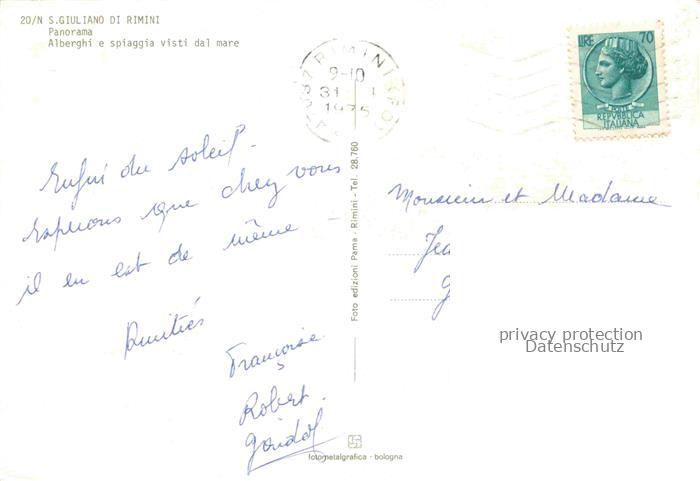 20/N S.GIULIANO DI RIMINI
Panorama
Alberghi e spiaggia visti dal mare
RIMINI
9-10
31
1975
LIRE 70
POSTE
REPVBBLICA
ITALIANA
Enfin du soleil.
espérons que chez vous
il en est de même
Amitiés
Françoise
Robert.
Foto edizioni Pama - Rimini - Tel. 28.760
Monsieur et Madame
Jea
G
privacy protection
Datenschutz
fotometalgrafica - bologna